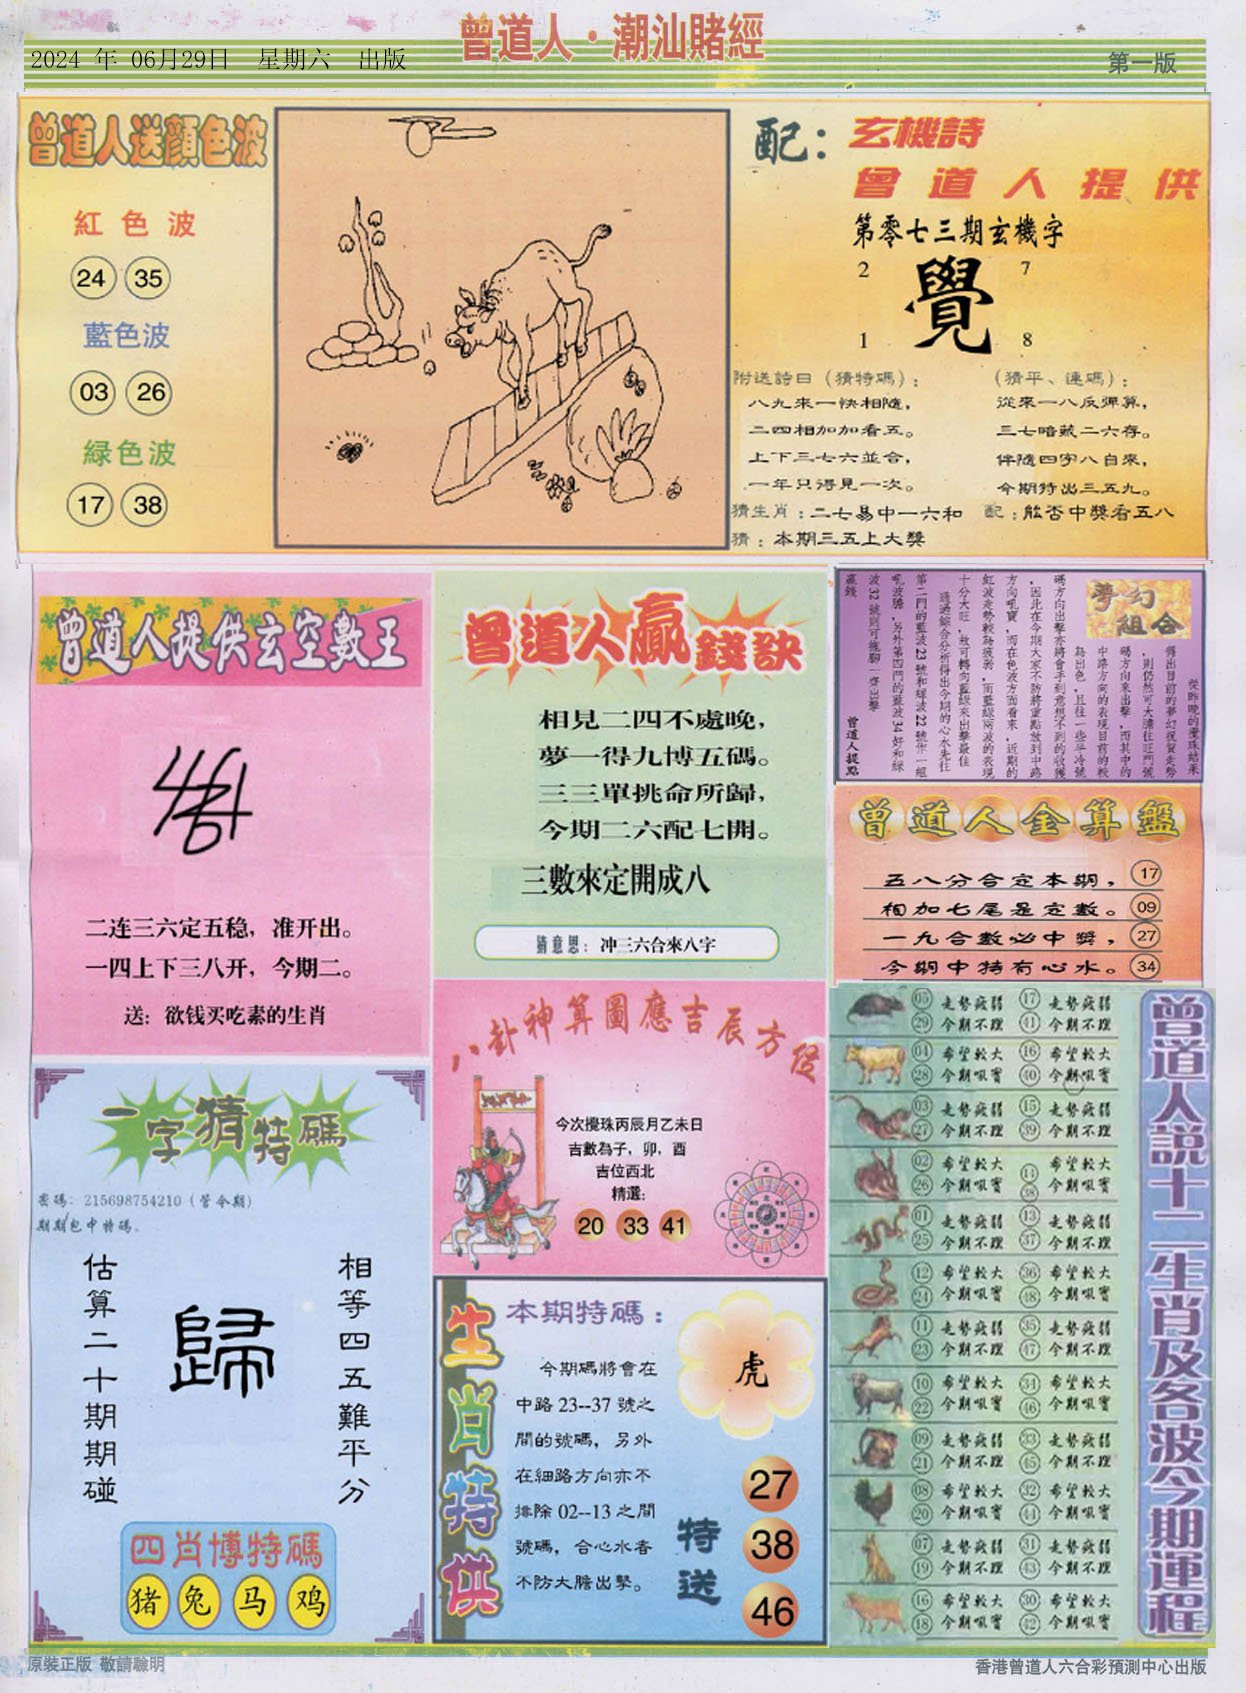 曾道人·潮汕賭經
2024 年 06月29日 星期六 出版
第一版
曾道人送顔色波
紅色波
24 35
藍色波
03 26
緑色波
17 38
配：玄機詩
曾道人提供
第零七三期玄機字
2 7
覺
1 8
附送詩曰（猜特碼）：
八九來一快相隨，
二四相加加看五。
上下三七六並合，
一年只得見一次。
（猜平、連碼）：
從來一八反彈算，
三七暗藏二六存。
伴隨四字八自來，
今期特出三五九。
猜生肖：二七易中一六和
配：能否中獎看五八
猜：本期三五上大獎
曾道人提供玄空數王
二连三六定五稳，准开出。
一四上下三八开，今期二。
送：欲钱买吃素的生肖
曾道人贏錢訣
相見二四不處晚，
夢一得九博五碼。
三三單挑命所歸，
今期二六配七開。
三數來定開成八
猜意思：冲三六合來八字
夢幻組合
從昨晚的攪珠結果
得出目前的夢幻祝賀走勢
，則仍然可大膽往旺門號
碼方向來出擊，而其中的
中路方向的表現目前的較
為出色，且往一些半冷號
碼方向出擊亦將會手到意想不到的收獲
，因此在今期大家不防將重點放到中路
方向吼寶，而在色波方面看來，近期的
紅波走勢較為疲弱，而藍緑兩波的表現
十分大旺，故可轉向藍緑來出擊最佳
通過綜合分析得出今期的心水先往
第二門的藍波23號和緑波22號作一組
吼波膽，另外第四門的藍波34好和緑
波32號則可拖腳一齊出擊
贏錢
曾道人提點
曾道人金算盤
五八分合定本期， 17
相加七尾是定數。 09
一九合數必中獎， 27
今期中特有心水。 34
八卦神算圖應吉辰方位
今次攪珠丙辰月乙未日
吉數為子，卯，酉
吉位西北
精選：
20 33 41
一字猜特碼
密碼：215698754210（管今期）
期期包中特碼。
估算二十期期碰
歸
相等四五難平分
四肖博特碼
猪 兔 马 鸡
生肖特供
本期特碼：
今期碼將會在
中路23--37號之
間的號碼，另外
在細路方向亦不
排除02--13之間
號碼，合心水者
不防大膽出擊。
虎
特送
27
38
46
曾道人説十二生肖及各波今期運程
05 走勢疲弱 17 走勢疲弱
29 今期不理 41 今期不理
04 希望較大 16 希望較大
28 今期吼寶 40 今期吼寶
03 走勢疲弱 15 走勢疲弱
27 今期不理 39 今期不理
02 希望較大 14 希望較大
26 今期吼寶 38 今期吼寶
01 走勢疲弱 13 走勢疲弱
25 今期不理 37 今期不理
12 希望較大 36 希望較大
24 今期吼寶 48 今期吼寶
11 走勢疲弱 35 走勢疲弱
23 今期不理 47 今期不理
10 希望較大 34 希望較大
22 今期吼寶 46 今期吼寶
09 走勢疲弱 33 走勢疲弱
21 今期不理 45 今期不理
08 希望較大 32 希望較大
20 今期吼寶 44 今期吼寶
07 走勢疲弱 31 走勢疲弱
19 今期不理 43 今期不理
16 希望較大 30 希望較大
18 今期吼寶 42 今期吼寶
原裝正版 敬請聰明
香港曾道人六合彩預測中心出版